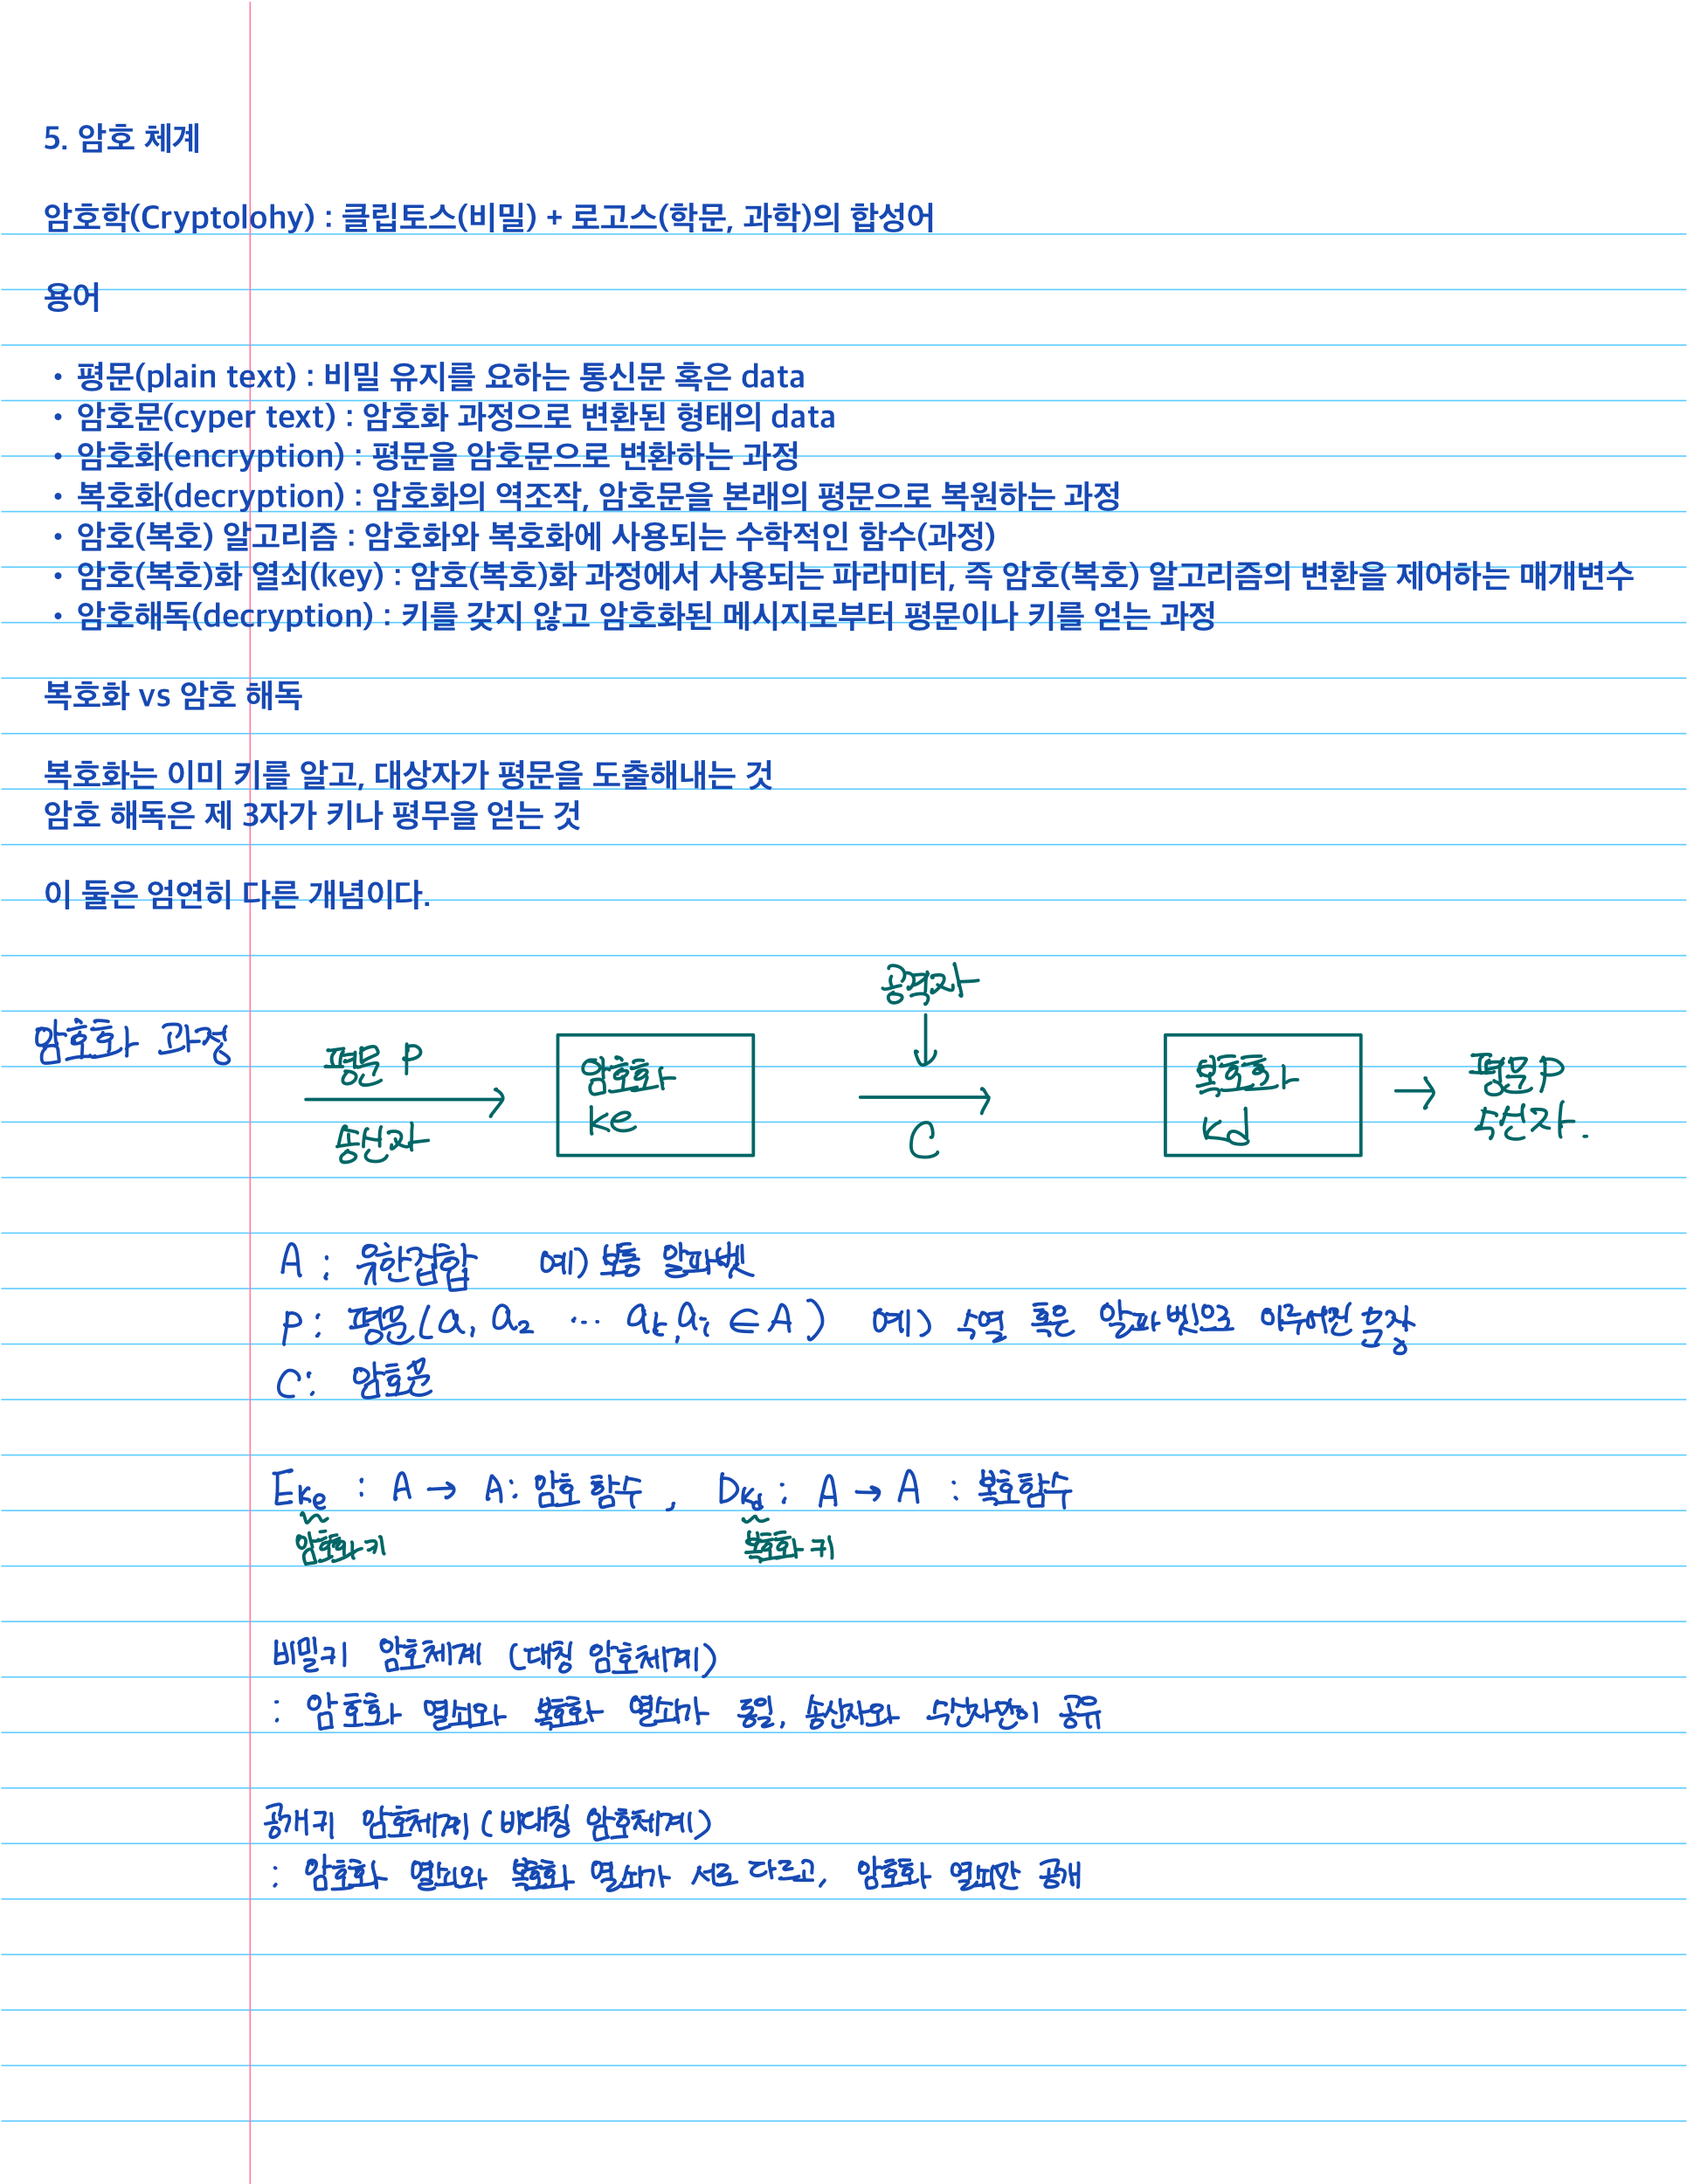 5. 암호 체계
암호학(Cryptolohy) : 클립토스(비밀) + 로고스(학문, 과학)의 합성어
용어
• 평문(plain text) : 비밀 유지를 요하는 통신문 혹은 data
• 암호문(cyper text) : 암호화 과정으로 변환된 형태의 data
• 암호화(encryption) : 평문을 암호문으로 변환하는 과정
• 복호화(decryption) : 암호화의 역조작, 암호문을 본래의 평문으로 복원하는 과정
• 암호(복호) 알고리즘 : 암호화와 복호화에 사용되는 수학적인 함수(과정)
• 암호(복호)화 열쇠(key) : 암호(복호)화 과정에서 사용되는 파라미터, 즉 암호(복호) 알고리즘의 변환을 제어하는 매개변수
• 암호해독(decryption) : 키를 갖지 않고 암호화된 메시지로부터 평문이나 키를 얻는 과정
복호화 vs 암호 해독
복호화는 이미 키를 알고, 대상자가 평문을 도출해내는 것
암호 해독은 제 3자가 키나 평무을 얻는 것
이 둘은 엄연히 다른 개념이다.
공격자
암호화 과정
평문 P
송신자
암호화
ke
C
복호화
kd
평문 P
수신자.
A : 유한집합 예) 보통 알파벳
P : 평문(a₁ a₂ ··· aₖ, aᵢ ∈ A) 예) 수열 혹은 알파벳으로 이루어진 문장
C : 암호문
Eke : A → A : 암호함수, Dkd : A → A : 복호함수
암호화 키 복호화 키
비밀키 암호체계 (대칭 암호체계)
: 암호화 열쇠와 복호화 열쇠가 동일, 송신자와 수신자만이 공유
공개키 암호체계 (비대칭 암호체계)
: 암호화 열쇠와 복호화 열쇠가 서로 다르고, 암호화 열쇠만 공개